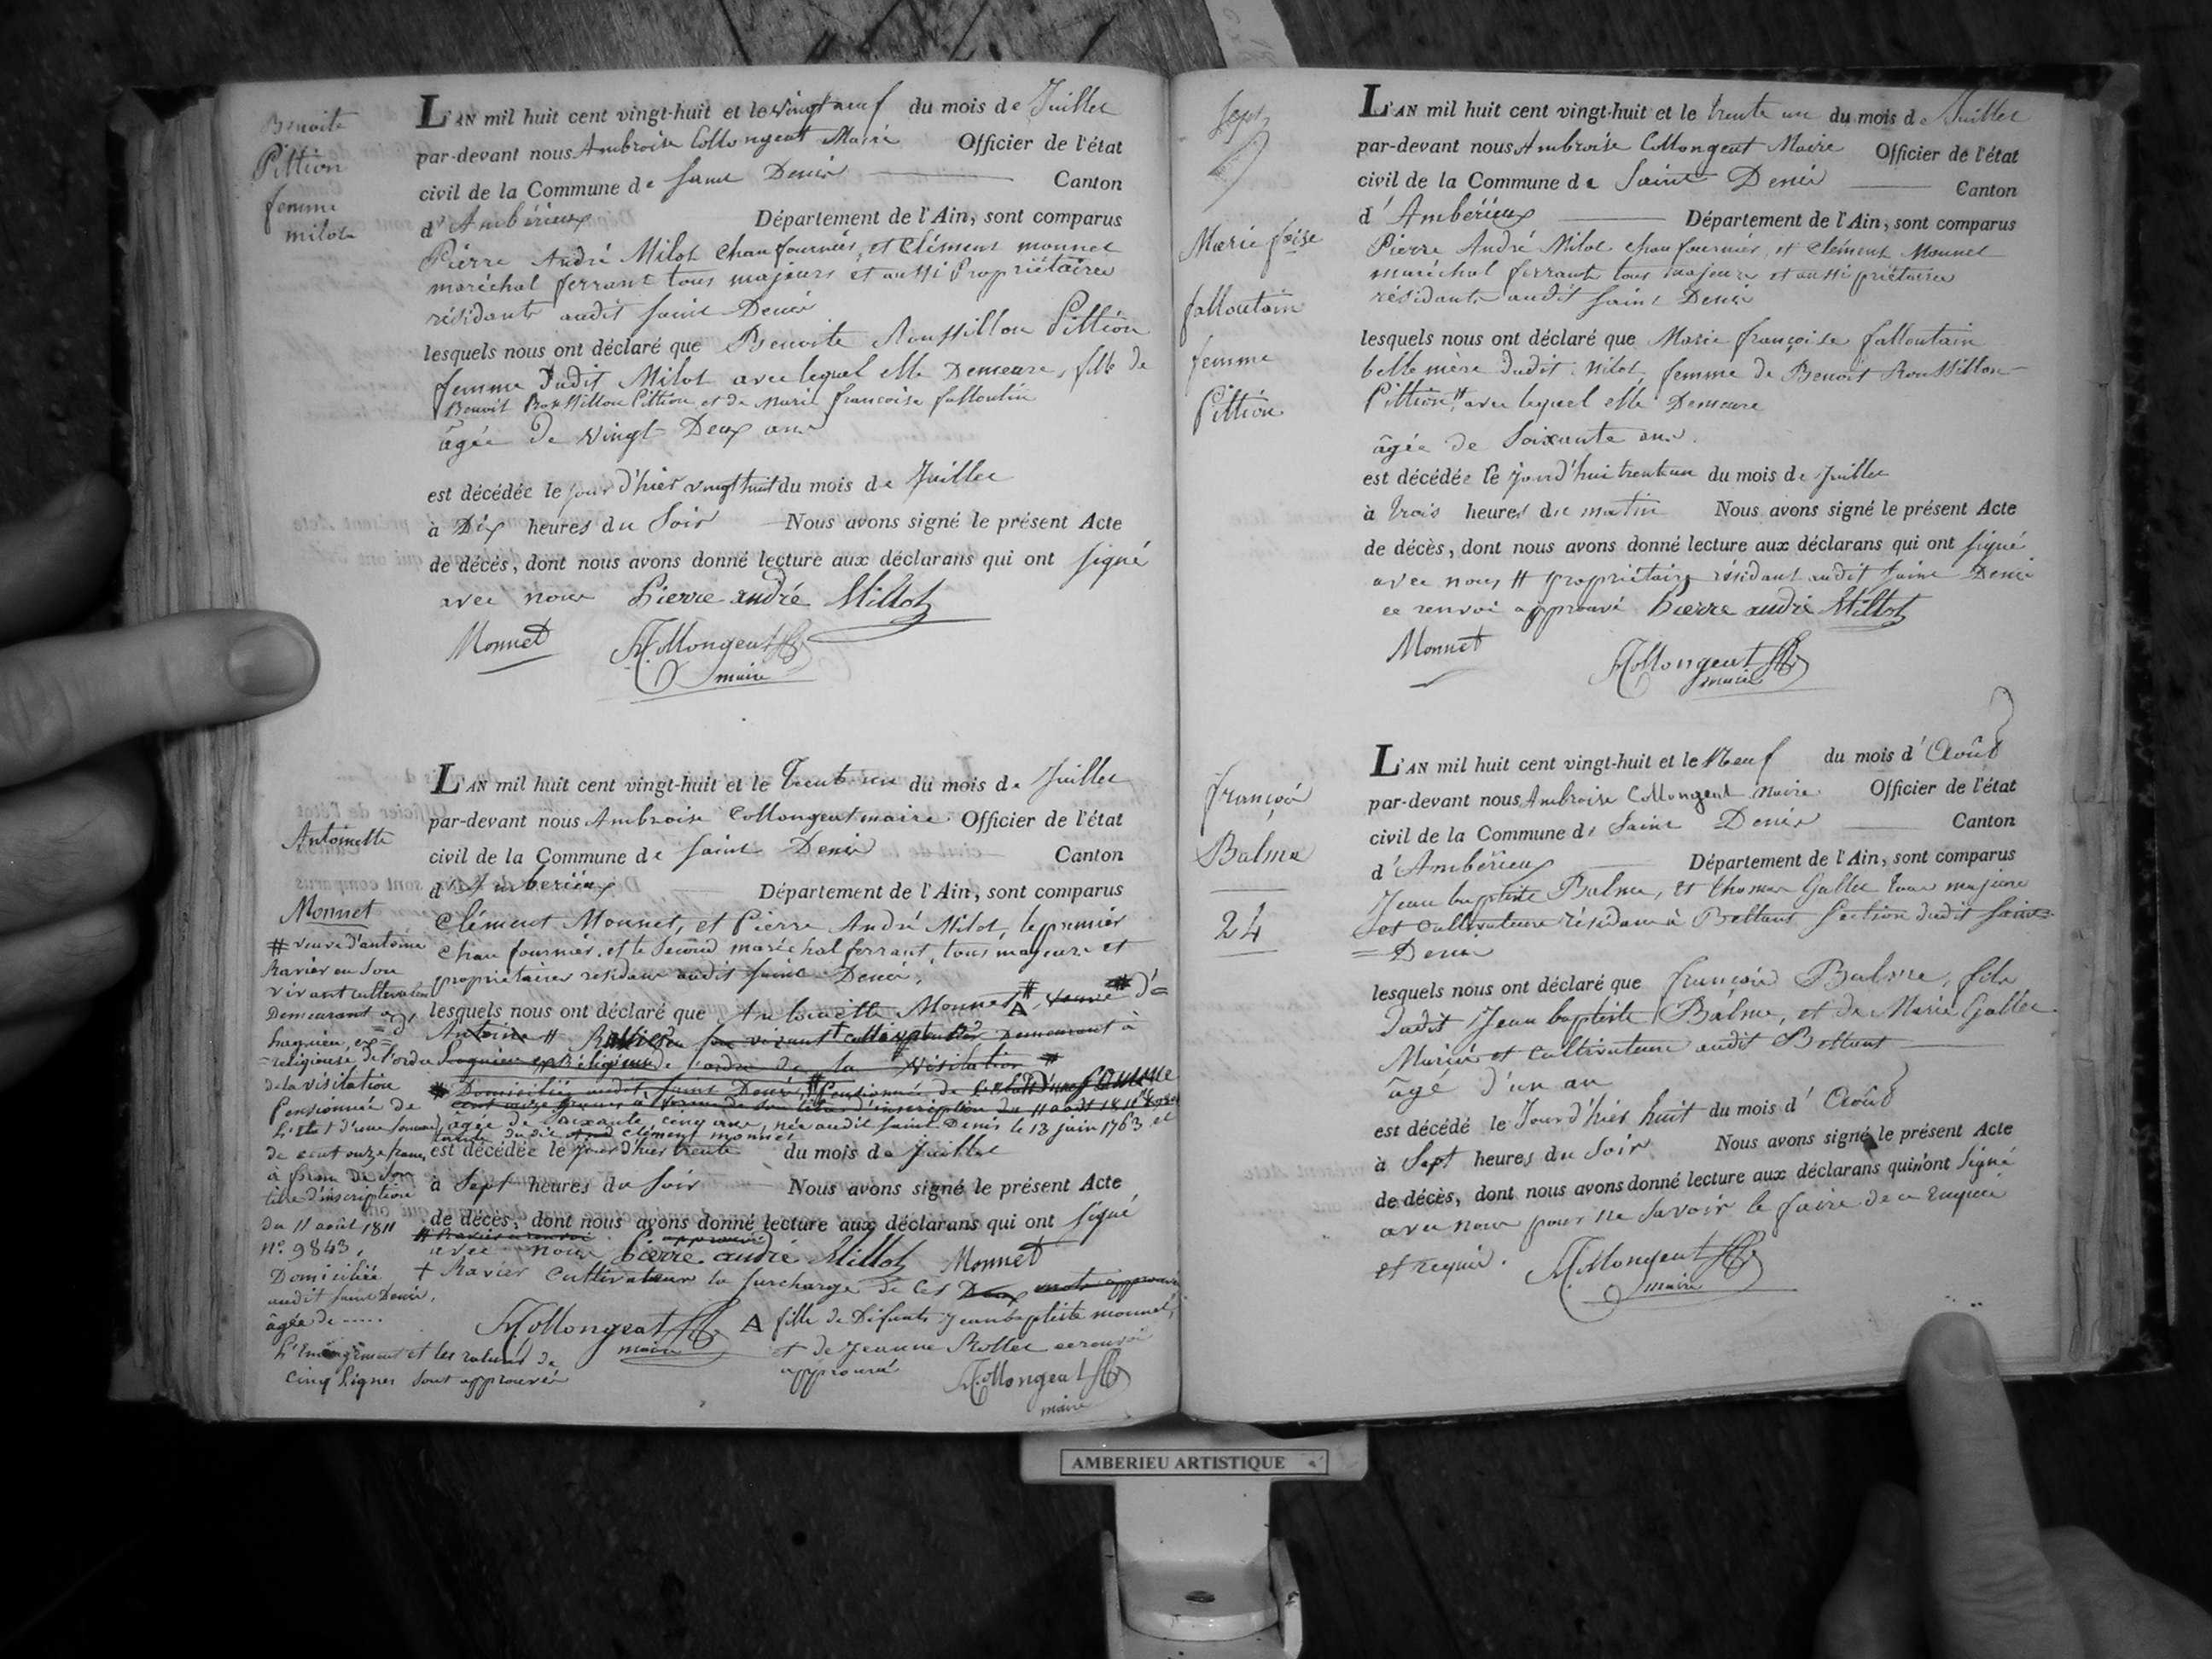 Benoite
Pittion
femme
milot
L'AN mil huit cent vingt-huit et le vingt neuf du mois de Juillet
par-devant nous Ambroise Collongeat Maire Officier de l'état
civil de la Commune de Saint Denis Canton
d'Ambérieux Département de l'Ain, sont comparus
Pierre André Milot chaufournier, et Clément monnet
maréchal ferrant tous majeurs et aussi Propriétaires
résidants audit saint Denis
lesquels nous ont déclaré que Benoite Roussillon Pittion
femme Dudit Milot avec lequel elle Demeure, fille de
Benoit Roussillon Pittion et de Marie françoise falloutin
âgée de vingt Deux ans
est décédée le jour d'hier vingt huit du mois de Juillet
à Dix heures du Soir Nous avons signé le présent Acte
de décès, dont nous avons donné lecture aux déclarans qui ont signé
avec nous Pierre andré Millot
Monnet Collongeat
maire
Antoinette
Monnet
# veuve d'antoine
Ravier en son
vivant cultivateur
Demeurant à
Lagnieu, ex=
=religieuse de l'ordre
de la visitation
Pensionnée de
L'Etat d'une somme
de cent onze francs
à forme de son
titre d'inscription
du 11 août 1811
n° 9843,
Domiciliée
audit saint Denis,
âgée de .....
L'AN mil huit cent vingt-huit et le Trente un du mois de Juillet
par-devant nous Ambroise Collongeat maire Officier de l'état
civil de la Commune de saint Denis Canton
d'Amberieux Département de l'Ain, sont comparus
Clément Monnet, et Pierre André Milot, le premier
chaufournier, et le Second maréchal ferrant, tous majeurs et
propriétaires residans audit saint Denis,
lesquels nous ont déclaré que Antoinette Monnet # A, veuve # d'=
Antoine # en son vivant cultivateur Demeurant à
Lagnieu ex Religieuse de l'ordre de la Visitation #
# Domiciliée audit saint Denis, # Pensionnée de l'état d'une somme
cent onze francs à forme de son titre d'inscription du 11 août 1811
âgée de soixante cinq ans, née audit saint Denis le 13 juin 1763 et
tante dudit Clément monnet
est décédée le jour d'hier trente du mois de Juillet
à Sept heures du Soir Nous avons signé le présent Acte
de décès, dont nous avons donné lecture aux déclarans qui ont signé
# Ravier ce renvoi approuvé
avec nous Pierre andré Millot Monnet
+ Ravier Cultivateur la surcharge de ces Deux mots approuvée
Collongeat A fille de Défunts Jean baptiste monnet,
maire et de Jeanne Rollet ce renvoi
approuvé Collongeat
maire
L'Emargement et les ratures de
cinq Lignes sont approuvés
Sept
Marie foise
falloutain
femme
Pittion
L'AN mil huit cent vingt-huit et le trente un du mois de Juillet
par-devant nous Ambroise Collongeat Maire Officier de l'état
civil de la Commune de Saint Denis Canton
d'Ambérieux Département de l'Ain, sont comparus
Pierre André Milot chaufournier, et Clément Monnet
maréchal ferrant tous majeurs et aussi priétaires
résidants audit saint Denis
lesquels nous ont déclaré que Marie françoise falloutain
belle mère dudit Milot, femme de Benoit Roussillon
Pittion #, avec lequel elle Demeure
âgée de Soixante ans.
est décédée le jourd'hui trent un du mois de Juillet
à trois heures du matin Nous avons signé le présent Acte
de décès, dont nous avons donné lecture aux déclarans qui ont signé
avec nous # propriétaire résidant audit saint Denis
ce renvoi approuvé Pierre andré Millot
Monnet Collongeat
maire
françois
Balme
24
L'AN mil huit cent vingt-huit et le Neuf du mois d'Août
par-devant nous Ambroise Collongeat Maire Officier de l'état
civil de la Commune de Saint Denis Canton
d'Ambérieux Département de l'Ain, sont comparus
Jean baptiste Balme, et thomas Gallet tous majeurs
et cultivateurs résidans à Bettant Section dudit saint=
=Denis
lesquels nous ont déclaré que françois Balme, fils
dudit Jean baptiste Balme, et de Marie Gallet
Mariés et cultivateurs audit Bettant
âgé d'un an
est décédé le Jour d'hier huit du mois d'Août
à Sept heures du Soir Nous avons signé le présent Acte
de décès, dont nous avons donné lecture aux déclarans qui n'ont Signé
avec nous pour ne savoir le faire de ce Enquis
et requis. Collongeat
maire
AMBERIEU ARTISTIQUE